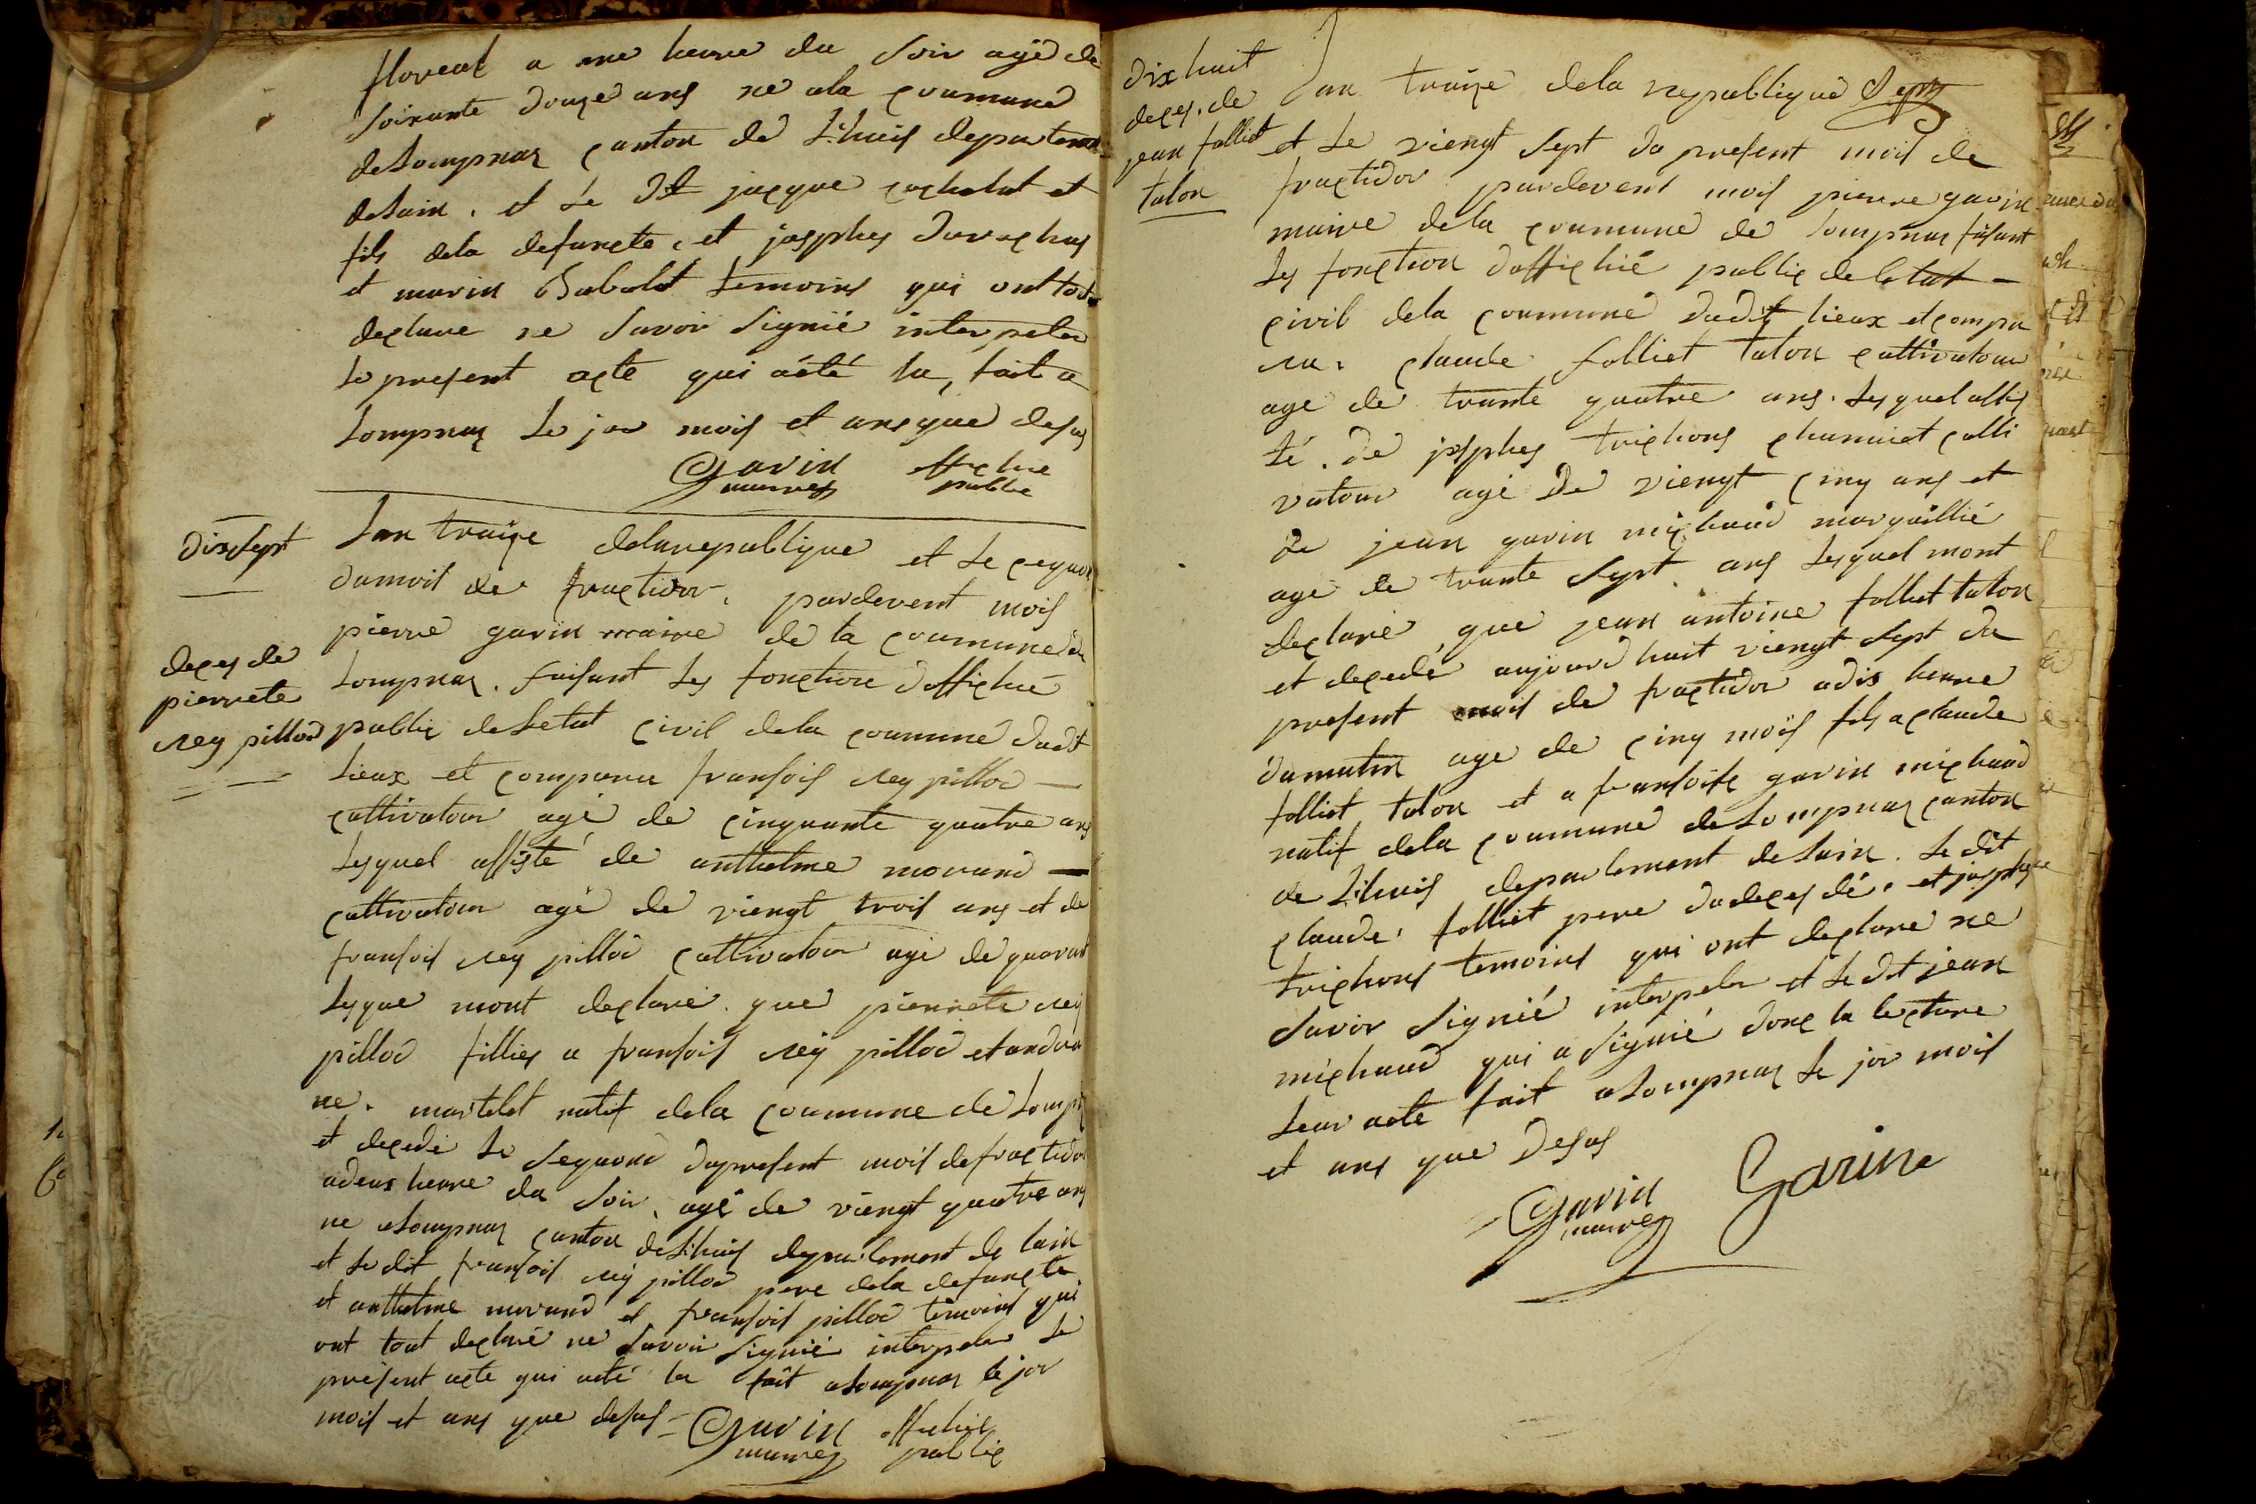 floreal a une heure du soir agé de
soixante douze ans né a la coumune
de Lompnaz canton de Lhuis departement
de lain. et le dit jacque et
fils dela defuncte, et josephes
et marin Babolat temoins qui ont tous
declare ne savoir signié interpeler
le present acte qui aété lu, fait a
Lompnaz le jor mois et ans que desus
Gavin offichie
maire public
Dixsept
deces de
pierrete
rey pillod
Lan traize delarepublique et le segon
dumois de fructidor, pardevent mois
pierre gavin maire de la coumune de
Lompnaz. faisant les fonction doffichié
public de letat civil dela coumune dudit
lieux et comparu fransois rey pillod
cultivatour agé de cinquante quatre ans
lesquel assisté de anthelme morand
cultivatour agé de viengt trois ans et de
fransois rey pillod cultivatour agé de quarant
lesque mont declaré que pierrete rey
pillod fillies a fransois rey pillod et andria
ne. martelet natif dela coumune de Lomp
et decedé le segond dupresent mois de fructidor
adeux heure du soir, agé de viengt quatre ans
ne aLompnaz canton de Lhuis departement de lain
et le dit fransois rey pillod pere dela defuncte
et anthelme morand et fransois pillod temoins qui
ont tout declaré ne savoir signié interpeler le
present acte qui aété lu fait aLompnaz le jor
mois et ans que desus
Gavin offichié
maire public
Dix huit
deces. de
jean folliet
talon
Lan traize dela republique Sept
et le viengt sept du present mois de
fructidor pardevent mois pierre gavin
maire dela coumune de Lompnaz faisant
les fonction doffichié public de letat
civil dela coumune dudit lieux et compa
ru. claude folliet talon cultivatour
age de trante quatre ans. lesquel assis
té. de josephes trichons chaminet culti
vatour agé de viengt cinq ans et
de jean gavin michaud marguillié
age de trante sept. ans lesquel mont
declaré que jean antoine folliet talon
et decedé aujourdhuit viengt sept du
present mois de fructidor adix heure
dumatin age de cinq mois fils a claude
folliet talon et a fransoise gavin michaud
natif dela coumune de Lompnaz canton
de Lhuis departement de lain. le dit
claude. folliet pere dudecedé. et josephe
trichons temoins qui ont declare ne
savoir signié interpeler et le dit jean
michaud qui a signié donc la lecture
leur acte fait aLompnaz le jor mois
et ans que desus
Gavin Garine
maire